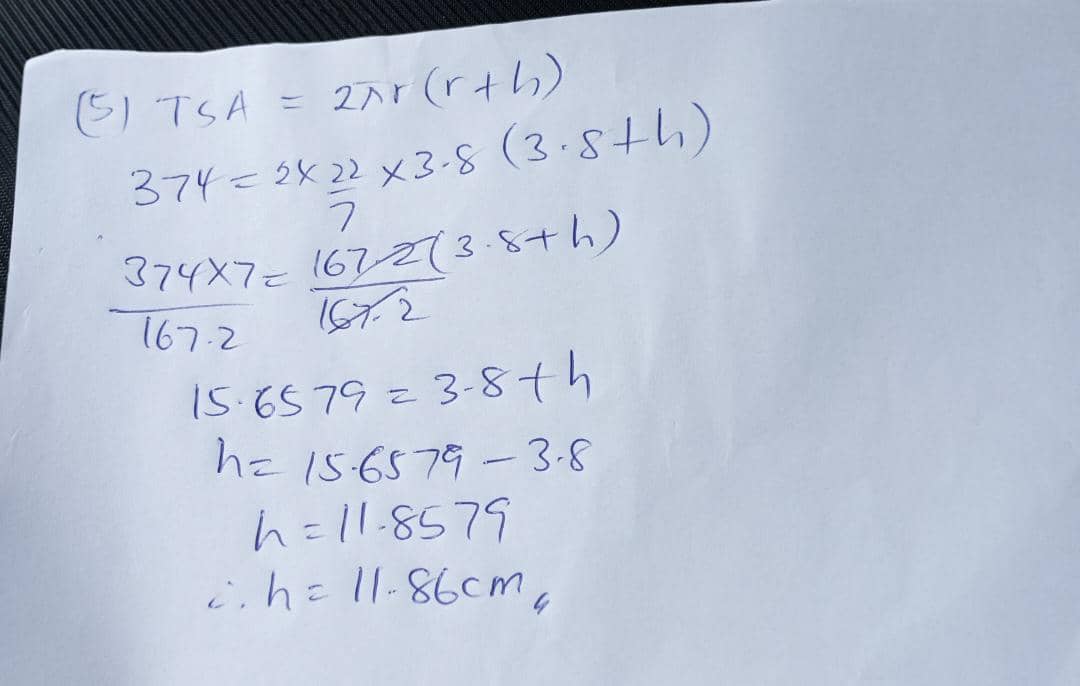 (5) TSA = 2πr(r+h)
374 = 2×22/7 ×3.8 (3.8+h)
374×7/167.2 = 167.2(3.8+h)/167.2
15.6579 = 3.8+h
h = 15.6579 - 3.8
h = 11.8579
∴ h = 11.86cm